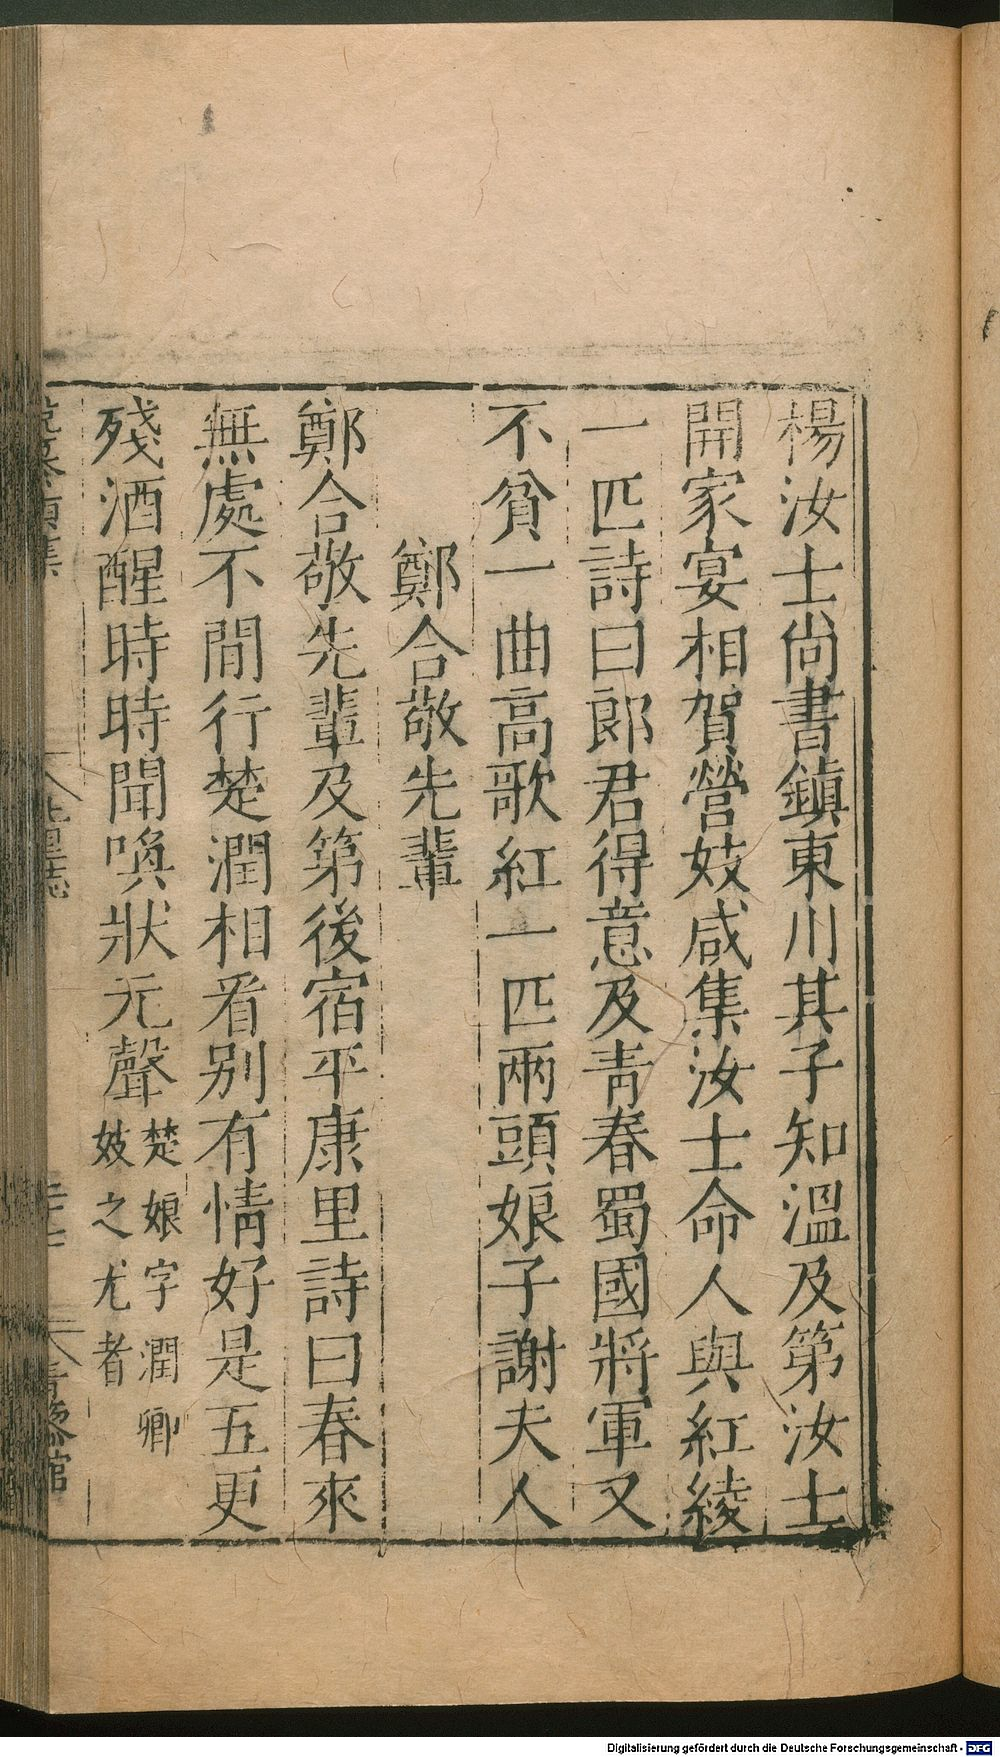 楊汝士尚書鎮東川其子知溫及第汝士
開家宴相賀營妓咸集汝士命人與紅綾
一匹詩曰郎君得意及青春蜀國將軍又
不貧一曲高歌紅一匹兩頭娘子謝夫人
鄭合敬先輩
鄭合敬先輩及第後宿平康里詩曰春來
無處不閒行楚潤相看別有情好是五更
殘酒醒時時聞喚狀元聲楚娘字潤卿
妓之尤者
Digitalisierung gefördert durch die Deutsche Forschungsgemeinschaft - DFG